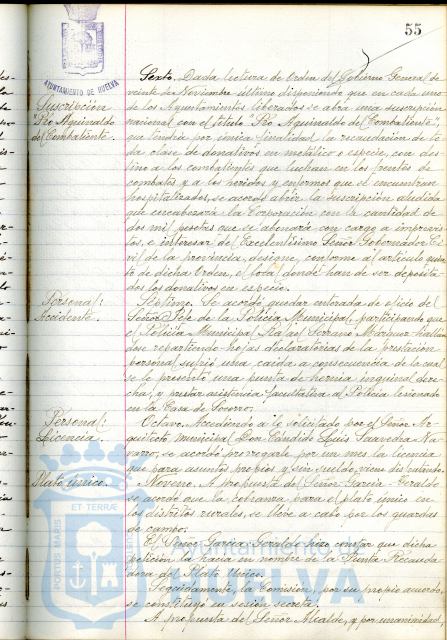 55
AYUNTAMIENTO DE HUELVA
Suscripción
"Pro Aguinaldo
del Combatiente.
Sexto. Dada lectura de Orden del Gobierno General de
veinte de Noviembre último disponiendo que en cada uno
de los Ayuntamientos liberados se abra una suscripción
nacional con el título "Pro Aguinaldo del Combatiente",
que tendrá por única finalidad la recaudación de to-
da clase de donativos en metálico o especie, con des-
tino a los combatientes que luchan en los frentes de
combates y a los heridos y enfermos que se encuentran
hospitalizados, se acordó abrir la suscripción aludida
que encabezará la Corporación con la cantidad de
dos mil pesetas que se abonará con cargo a imprevis-
tos, e interesar del Excelentísimo Señor Gobernador Ci-
vil de la provincia, designe, conforme al artículo
to de dicha Orden, el local donde han de ser deposita-
dos los donativos en especie.
Personal:
Accidente.
Séptimo. Se acordó quedar enterada de oficio del
Señor Jefe de la Policía Municipal, participando que
el Policía Municipal Rafael Serrano Márquez hallán-
dose repartiendo hojas declaratorias de la prestación
personal sufrió una caída a consecuencia de la cual
se le presentó una punta de hernia inguinal dere-
cha, y prestar asistencia facultativa al Policía lesionado
en la Casa de Socorro.
Personal:
Licencia.
Octavo. Accediendo a lo solicitado por el Señor Ar-
quitecto Municipal Don Cándido Luis Saavedra Na-
varro, se acordó prorrogarle por un mes la licencia
que para asuntos propios y sin sueldo, viene disfrutando.
Plato único.
Noveno. A propuesta del Señor García Geraldo
se acordó que la cobranza para el plato único en
los distritos rurales, se lleve a cabo por los guardas
de campo.
El Señor García Geraldo hizo constar que dicha
petición la hacía en nombre de la Junta Recauda-
dora del Plato Único.
Seguidamente, la Comisión, por su propio acuerdo,
se constituyó en sesión secreta.
A propuesta del Señor Alcalde, y por unanimidad
PORTUS MARIS ET TERRAE
Ayuntamiento de
HUELVA